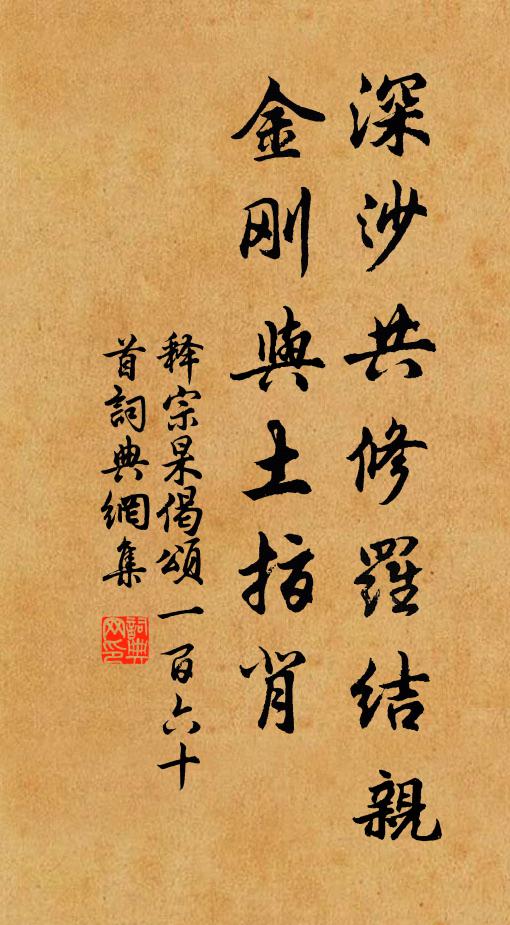 深沙共修羅結親
金刚與土揩背
释宗杲偈頌一百六十
首詞典網集
詞典
网印